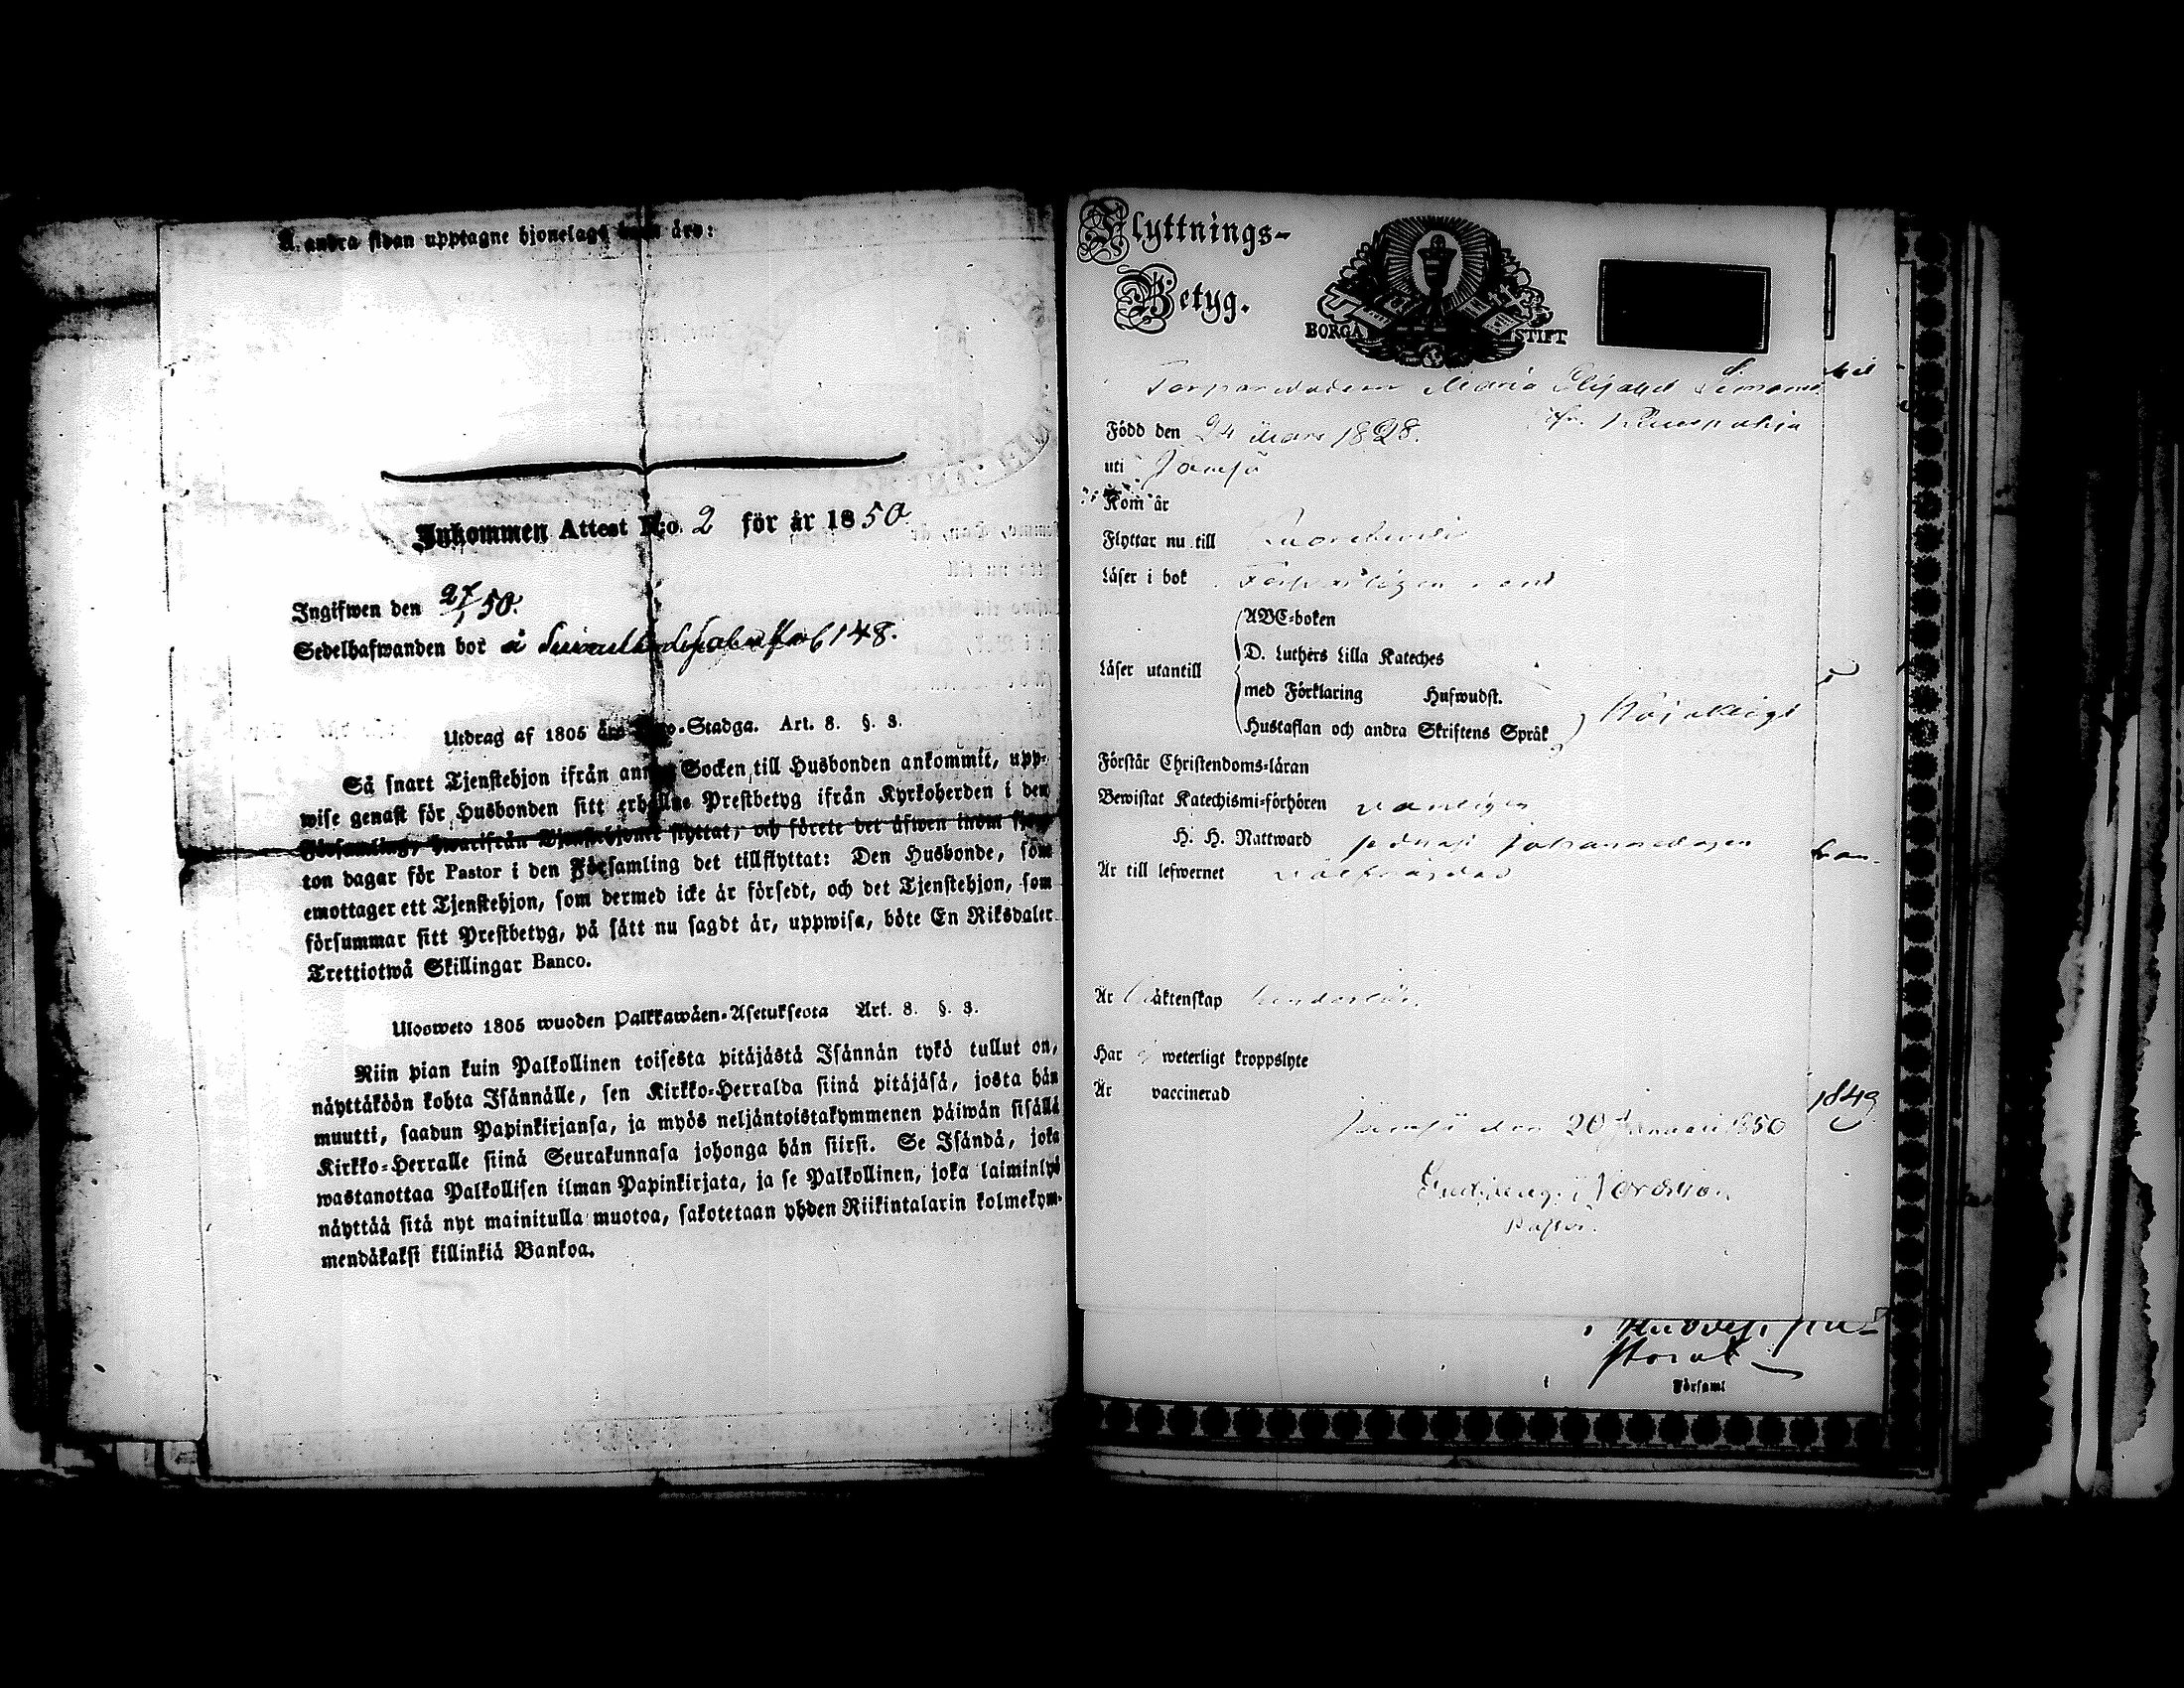 Å andra sidan upptagne hjonelags barn äro:
Inkommen Attest N:o 2 för år 1850.
Ingifwen den 27/1 50.
Sedelhafwanden bor å 148.
Utdrag af 1805 års Lego-Stadga. Art. 8. §. 3.
Så snart Tjenstehjon ifrån annan Socken till Husbonden ankommit, upp-
wise genast för Husbonden sitt erhållne Prestbetyg ifrån Kyrkoherden i den
Församling, hwarifrån Tjenstehjonet flyttat, och förete det äfwen inom fjor-
ton dagar för Pastor i den Församling det tillflyttat: Den Husbonde, som
emottager ett Tjenstehjon, som dermed icke är försedt, och det Tjenstehjon, som
försummar sitt Prestbetyg, på sätt nu sagdt är, uppwisa, böte En Riksdaler
Trettiotwå Skillingar Banco.
Ulosweto 1805 wuoden Palkkawäen-Asetuksesta Art. 8. §. 3.
Niin pian kuin Palkollinen toisesta pitäjästä Isännän tykö tullut on,
näyttäköön kohta Isännälle, sen Kirkko-Herralda siinä pitäjäsä, josta hän
muutti, saadun Papinkirjansa, ja myös neljäntoistakymmenen päiwän sisällä
Kirkko-Herralle siinä Seurakunnasa johonga hän siirsi. Se Isändä, joka
wastanottaa Palkollisen ilman Papinkirjata, ja se Palkollinen, joka laiminlyö
näyttää sitä nyt mainitulla muotoa, sakotetaan yhden Riikintalarin kolmekym-
mendäkaksi killinkiä Bankoa.
Flyttnings-
Betyg.
BORGÅ STIFT
Maria
Född den 24 Mars 1828.
uti Jämsä
Kom år
Flyttar nu till
Läser i bok
Läser utantill
ABC-boken
D. Luthers Lilla Kateches
med Förklaring Hufwudst.
Hustaflan och andra Skriftens Språk
Förstår Christendoms-läran
Bewistat Katechismi-förhören
H. H. Nattward sednast Johannedagen
Är till lefwernet
Är äktenskap
Har ej weterligt kroppslyte
Är vaccinerad
1849
Jämsä den 20 Januari 1850
Pastor.
Församl